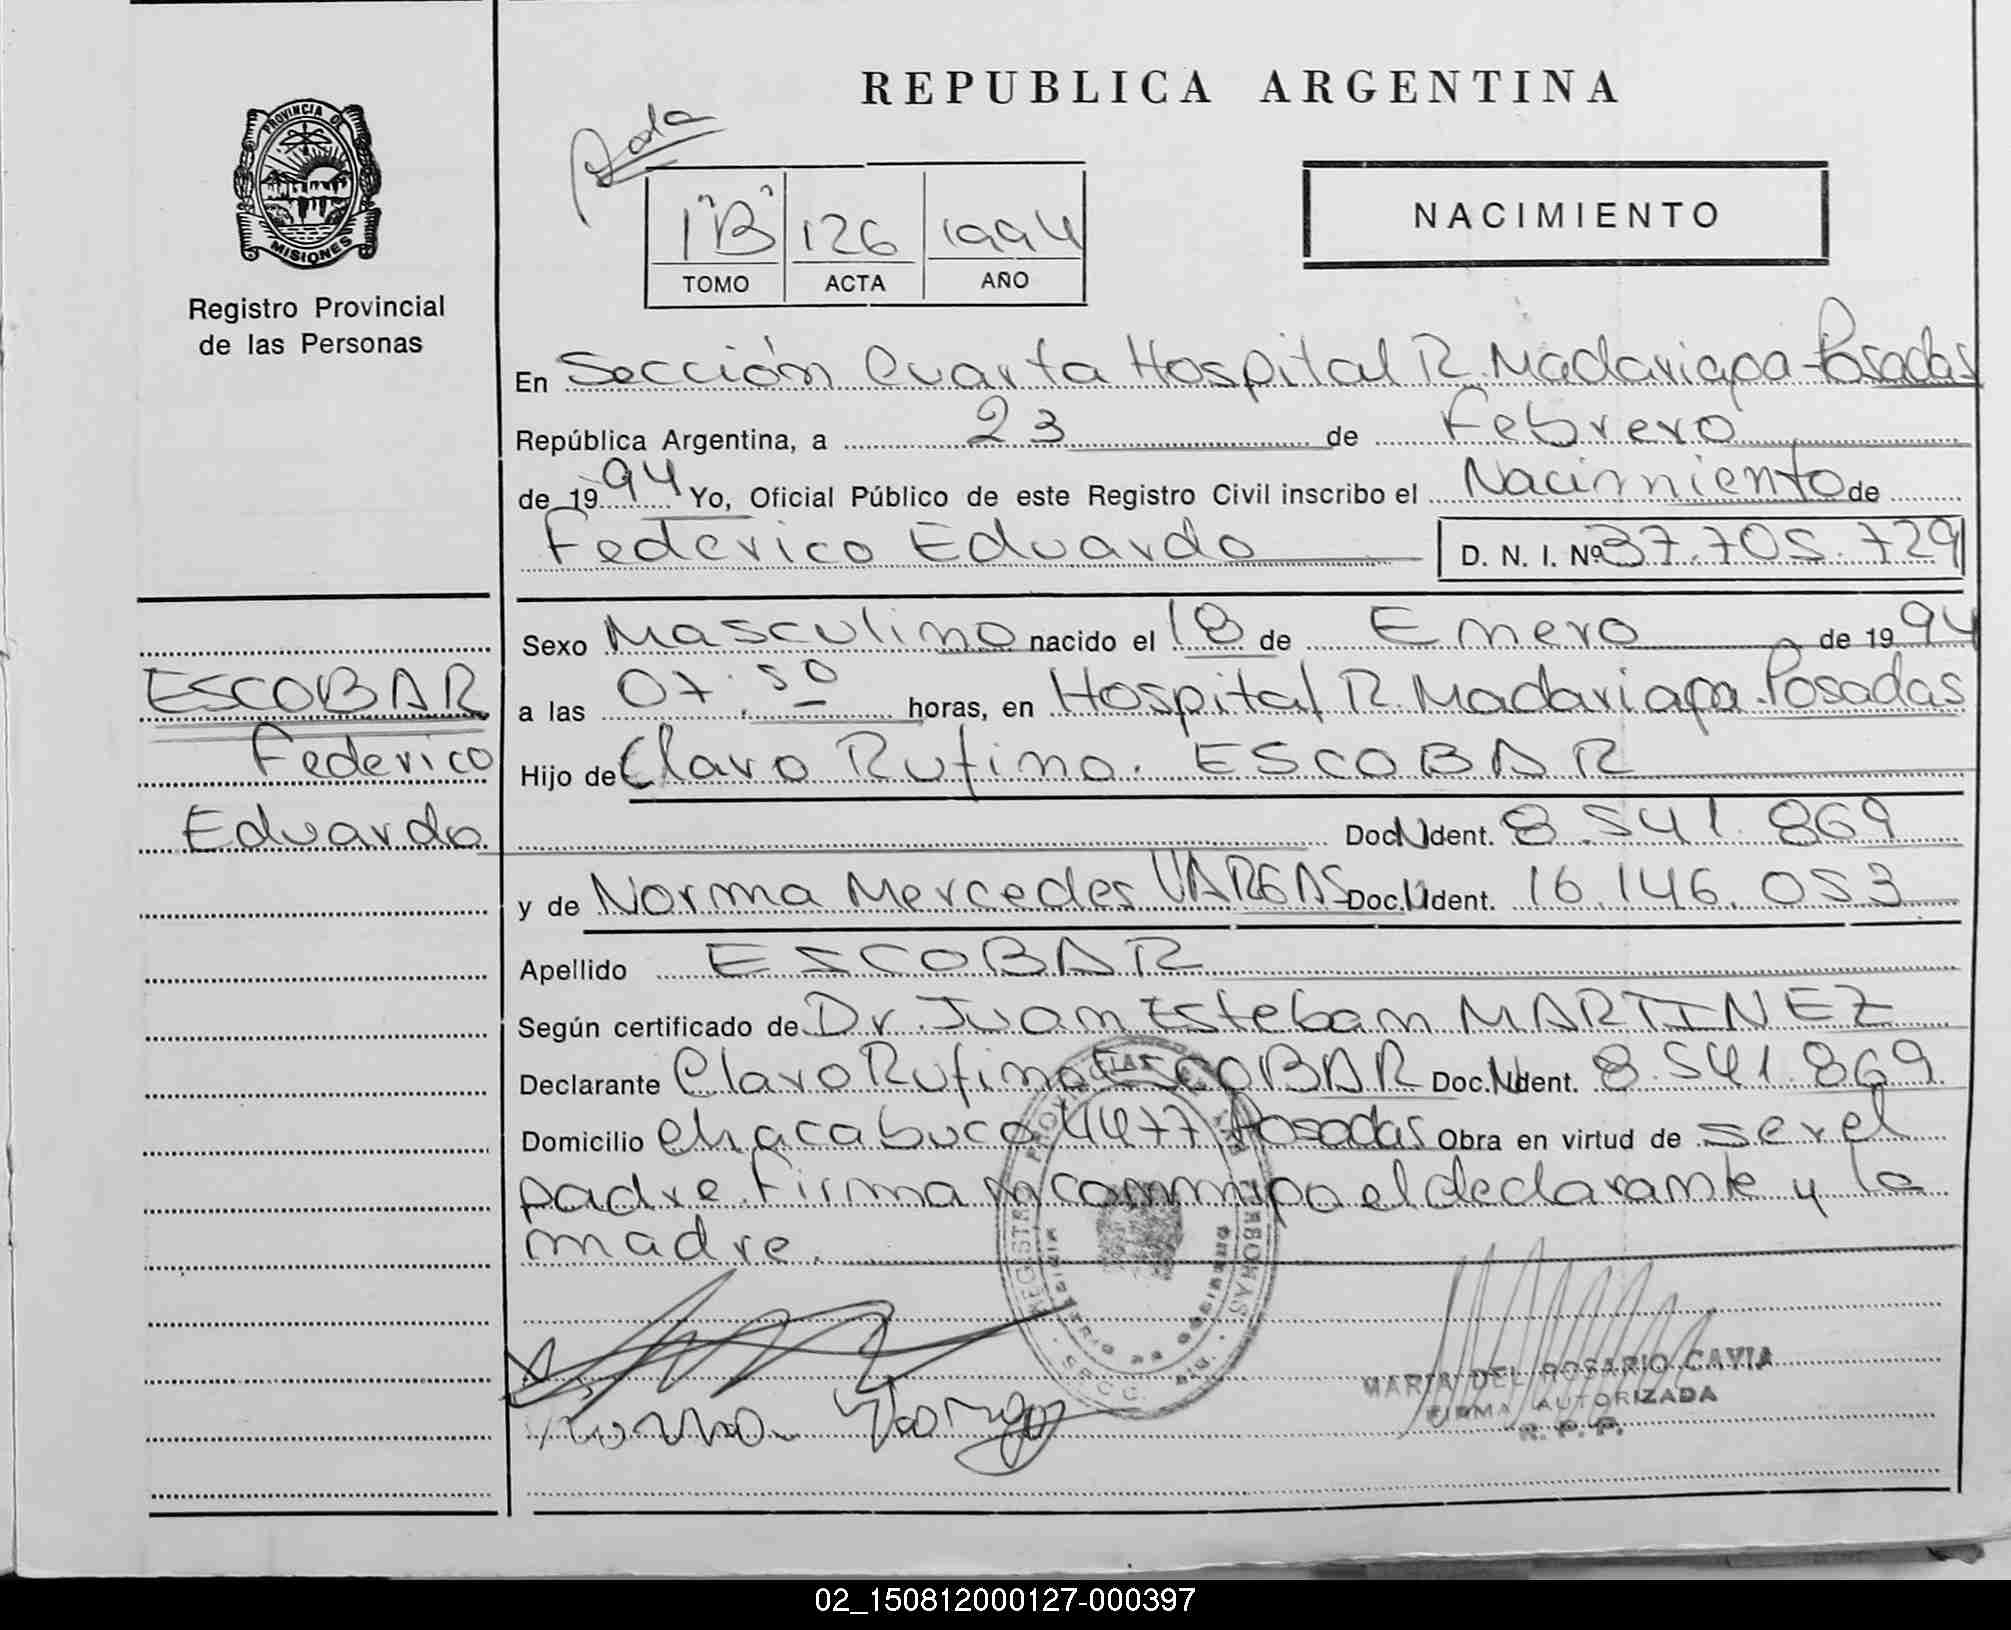 REPUBLICA ARGENTINA
PROVINCIA DE
MISIONES
Registro Provincial
de las Personas
1 "B" 126 1994
TOMO ACTA AÑO
NACIMIENTO
En Sección Cuarta Hospital R. Madariaga - Posadas
República Argentina, a 23 de Febrero
de 1994 Yo, Oficial Público de este Registro Civil inscribo el Nacimiento de
Federico Eduardo D. N. I. Nº 37.705.729
Sexo Masculino nacido el 18 de Enero de 1994
a las 07:50 horas, en Hospital R. Madariaga - Posadas
Hijo de Claro Rufino. ESCOBAR
Doc. N Ident. 8.541.869
y de Norma Mercedes VARGAS Doc. U Ident. 16.146.053
Apellido ESCOBAR
Según certificado de Dr. Juan Esteban MARTINEZ
Declarante Claro Rufino ESCOBAR Doc. N Ident. 8.541.869
Domicilio Chacabuco 4477 Posadas Obra en virtud de ser el
padre. Firman conmigo el declarante y la
madre.
ESCOBAR
Federico
Eduardo
Norma Vargas
MARIA DEL ROSARIO CAVIA
FIRMA AUTORIZADA
R. P. P.
02_150812000127-000397